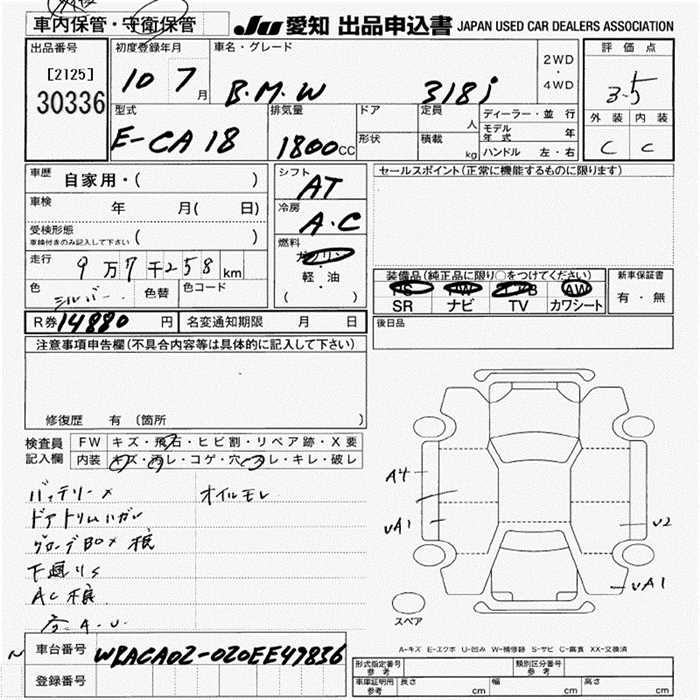 車内保管・守衛保管
JU 愛知 出品申込書 JAPAN USED CAR DEALERS ASSOCIATION
出品番号
[2125]
30336
初度登録年月
10 7 月
車名・グレード
B.M.W 318i
2WD
・
4WD
評価点
3.5
外装 内装
C C
型式
E-CA18
排気量
1800cc
ドア
形状
定員 人
積載 kg
ディーラー・並行
モデル年式 年
ハンドル 左・右
車歴 自家用・( )
車検 年 月( 日)
受検形態
車検付きのみ記入して下さい ( )
走行 9万7千258km
色 シルバー 色替 色コード
シフト AT
冷房 A.C
燃料 ガソリン
軽・油
( )
セールスポイント(正常に機能するものに限ります)
装備品(純正品に限り○をつけてください)
PS PW エアB AW
SR ナビ TV カワシート
新車保証書
有・無
R券 14880 円
名変通知期限 月 日
後日品
注意事項申告欄(不具合内容等は具体的に記入して下さい)
修復歴 有 (箇所 )
検査員記入欄
FW キズ・飛石・ヒビ割・リペア跡・X要
内装 キズ・汚レ・コゲ・穴・スレ・キレ・破レ
バッテリーX オイルモレ
ドアトリムハガレ
グローブBOX
下廻りS
A4
UA1
U2
UA1
スペア
A-キズ E-エクボ U-凹み W-補修跡 S-サビ C-腐食 XX-交換済
車台番号 WBACA02-020EE47836
登録番号
形式指定番号
参考
類別区分番号
参考
車庫証明用
参考
長さ cm 幅 cm 高さ cm